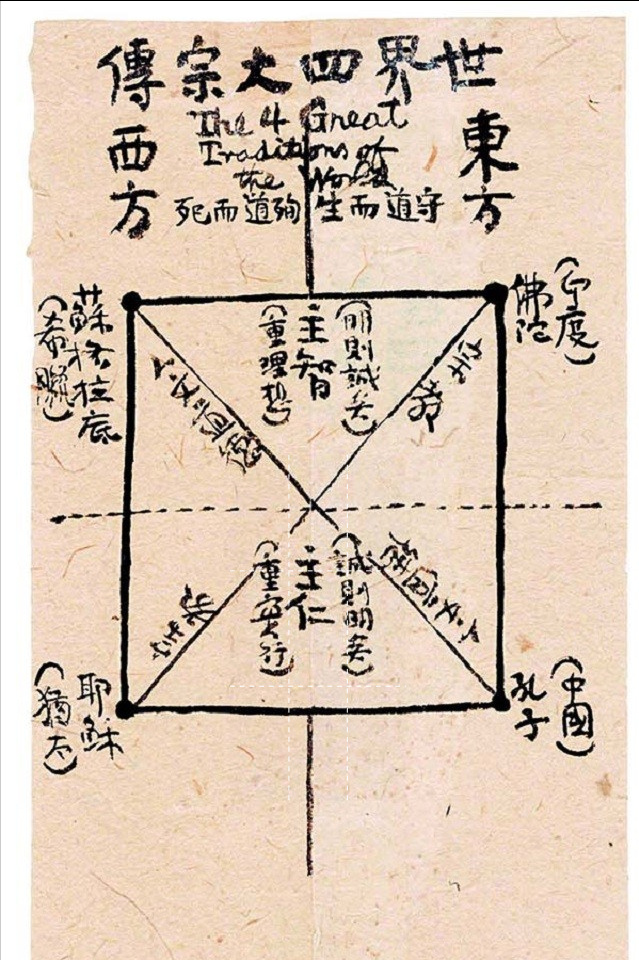 世界四大宗傳
The 4 Great
Traditions of
the World
東方
西方
守道而生
殉道而死
(印度)
佛陀
(明則誠矣)
主智
(重理想)
蘇格拉底
(希臘)
(誠則明矣)
主仁
(重實行)
(中國)
孔子
耶穌
(猶太)